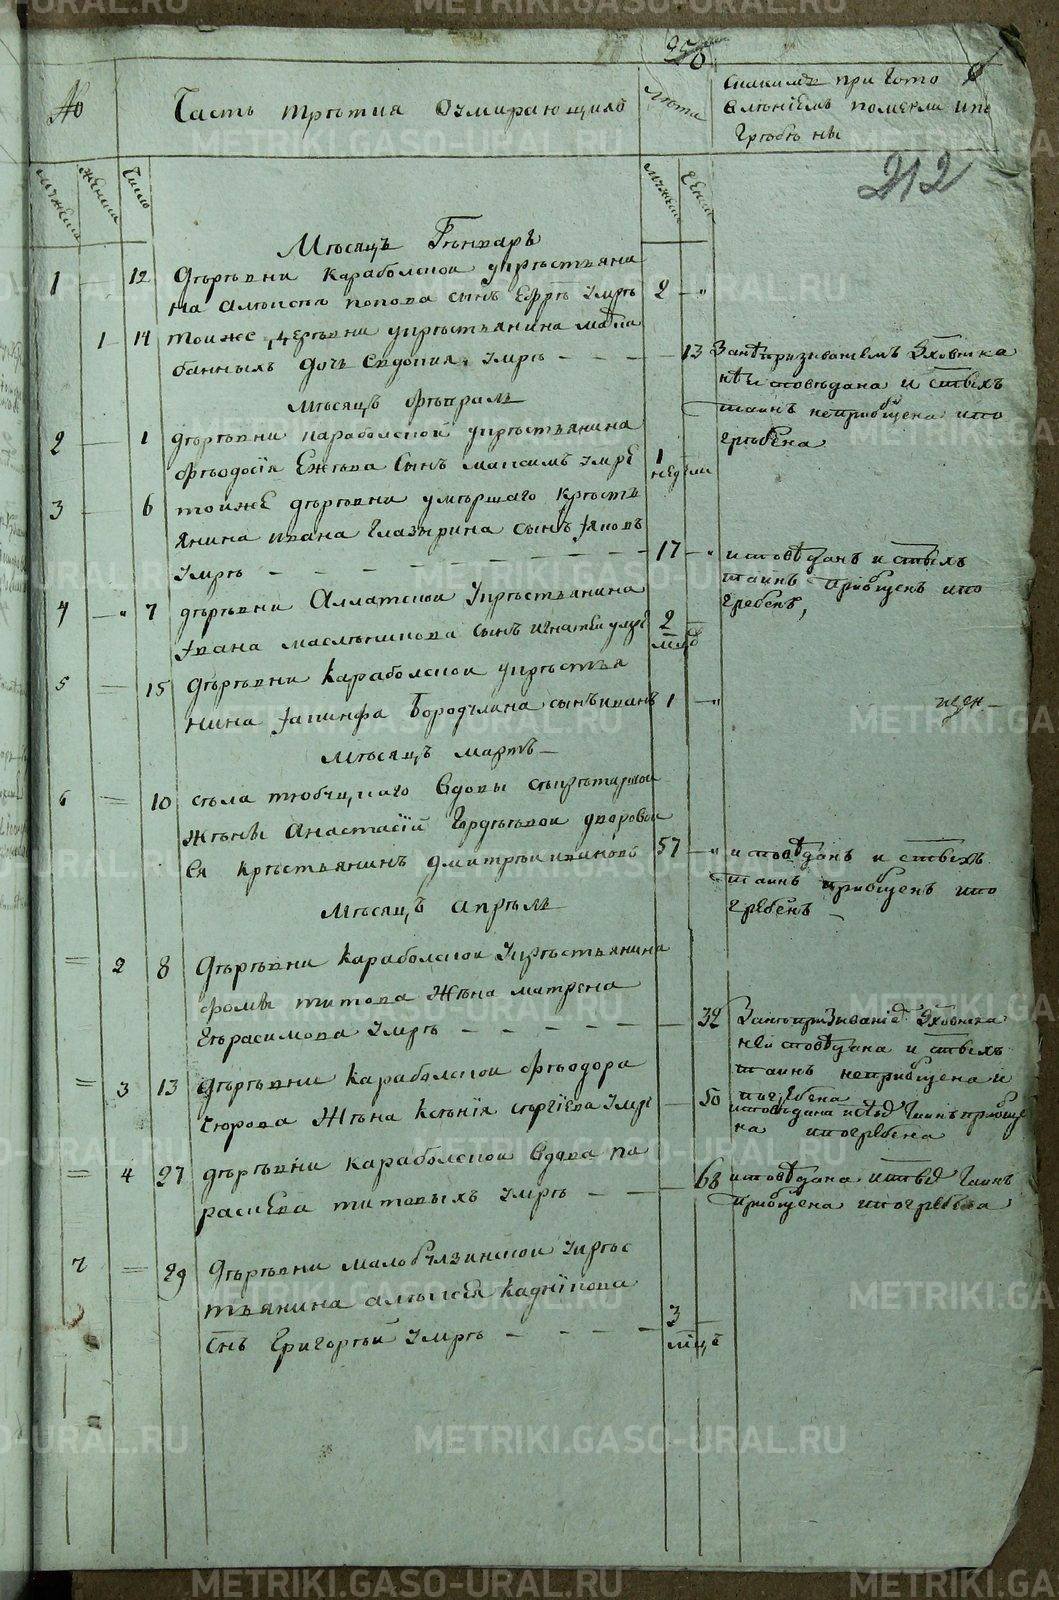 №
Часть третия оумирающихъ
Лета
Скакимъ приготовлениемъ померли и погребены
212
мужеска
женска
Число
мужеск
женск
Месяцъ Генварь
1 — 12 деревни Караболской у крестьяни
на Алексея Попова сынъ Ефремъ умре 2 — "
1 — 14 тоиже деревни у крестьянина
банныхъ дочь Евдокия умре — — — 13 Занепризываниемъ духовника
неисповедана и стыхъ
таинъ неприобщена и по
гребена
Месяцъ февраль
2 — 1 деревни Караболской у крестьянина
Феодосия Ежева сынъ Максимъ умре 1
недели
3 — 6 тоиже деревни умершаго кресть
янина ивана Глазырина сынъ Яковъ
умре — — — 17 — " исповеданъ и стыхъ
таинъ приобщенъ и по
гребенъ,
4 — " 7 деревни Аллатской у крестьянина
ивана Масленикова сынъ Игнатеи умре 2
мца
5 — 15 деревни Караболской у крестья
нина Иакинфа Бородулина сынъ иванъ 1 — "
Месяцъ мартъ —
6 = 10 села вдовы секретарской
жены Анастасии Гордеевой дворовой
ея крестьянинъ Дмитреи ивановъ 57 — " исповеданъ и стыхъ
таинъ приобщенъ и по
гребенъ —
Месяцъ апрель
= 2 8 деревни Караболской у крестьянина
Фомы Титова жена Матрена
Герасимова умре — — — — 32 Занепризывание духовника
неисповедана и стыхъ
таинъ неприобщена и
погребена
= 3 13 деревни Караболской Феодора
Сюрова жена Ксения Сергиева умре — 50 исповедана и стыхъ таинъ приобще
на и погребена
= 4 27 деревни Караболской вдова Па
раскева Титовыхъ умре — — 68 исповедана и стыхъ таинъ
приобщена и погребена
7 = 29 деревни Малобулзинской у крес
тьянина Алексея Кадникова
снъ Григореи умре — — — — 3
мца
METRIKI.GASO-URAL.RU